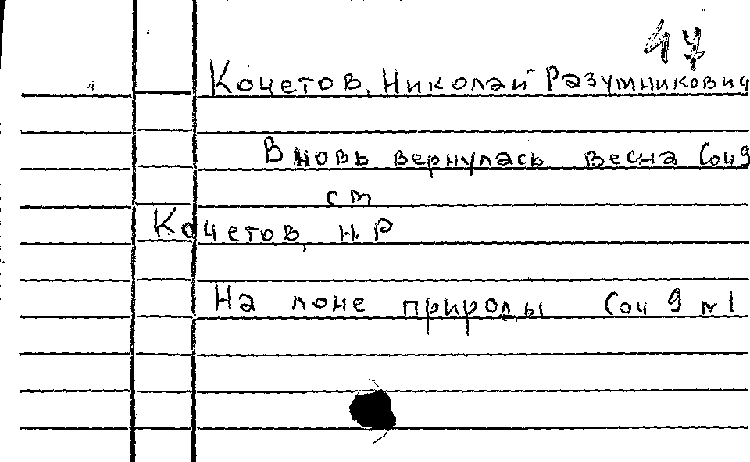 47
Кочетов, Николай Разумникович
Вновь вернулась весна Соч 9
см
Кочетов, Н. Р
На лоне природы Соч 9 № 1